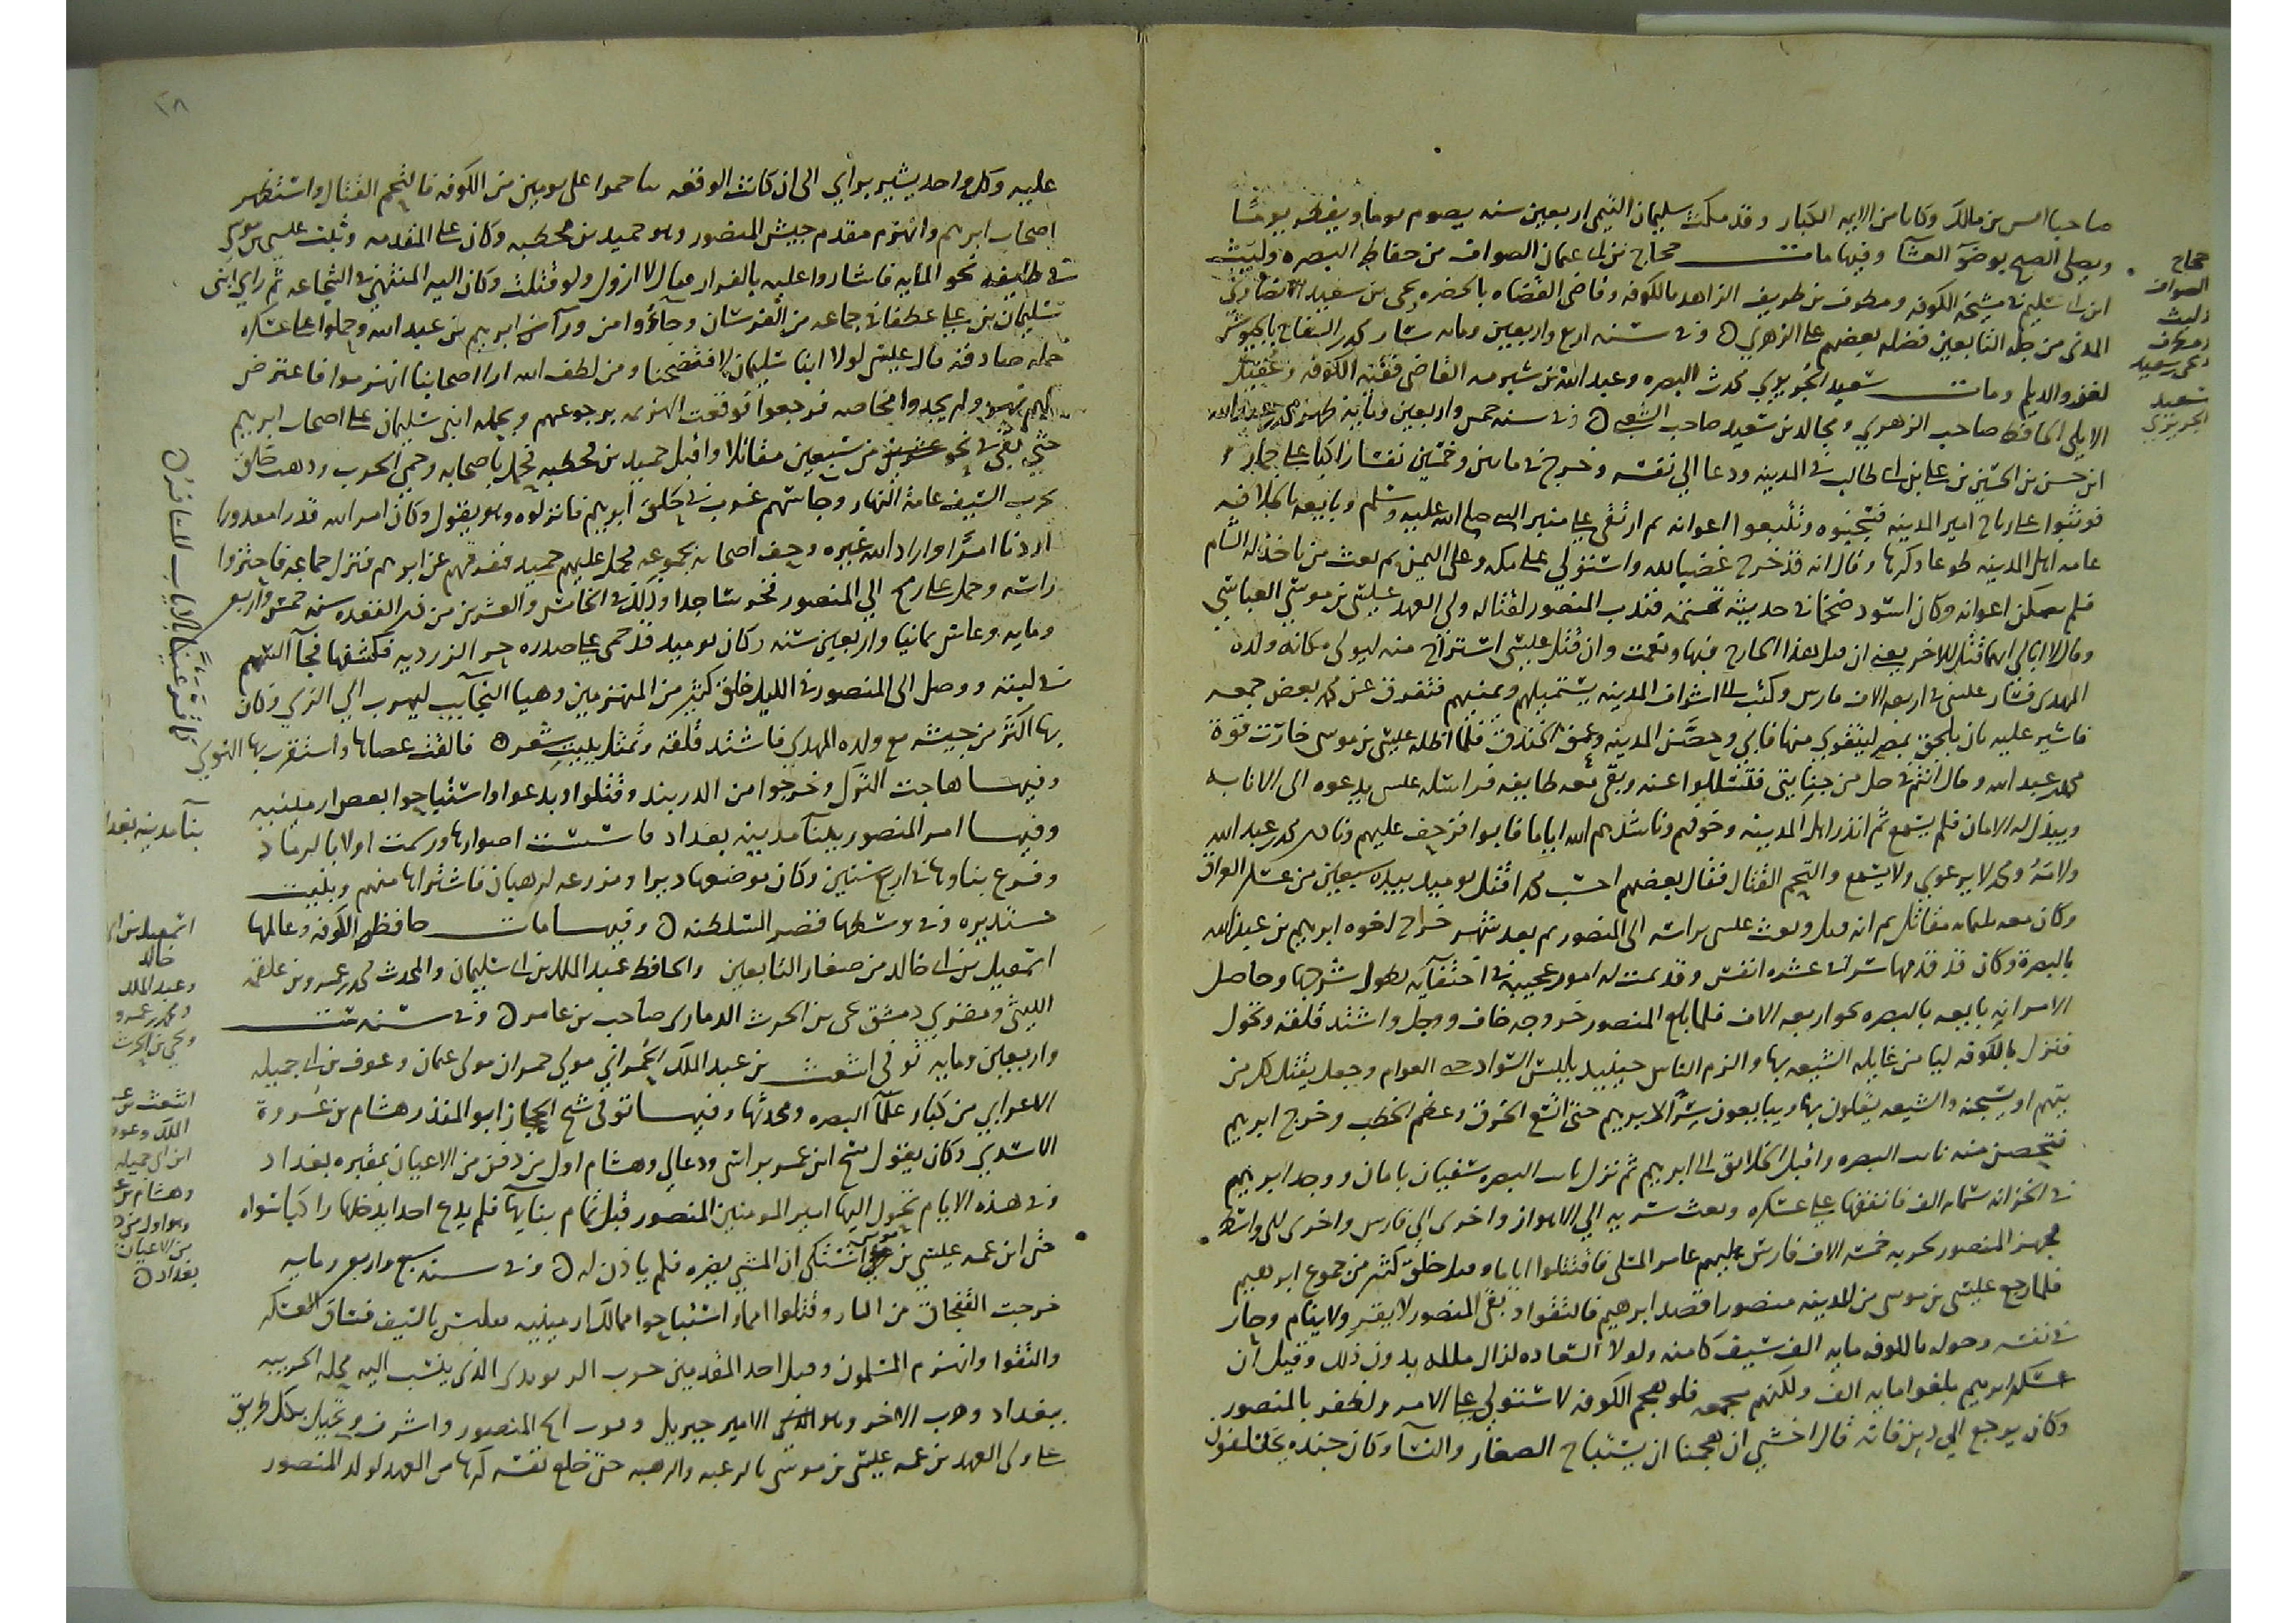 صاحبا انس بن مالك وكانا من الايمه الكبار وقد مكث سليمان التيمى اربعين سنه يصوم يوما ويفطر يوما
ويصلى الصبح بوضو العشا وفيها مات حجاج بن ابى عثمان الصواف من حفاظ البصره وليث
ابن ابى سليم شيخ الكوفه ومطرف بن طريف الزاهد بالكوفه وقاضى القضاه يحيى بن سعيد الانصارى
المدنى من جله التابعين فضله بعضهم على الزهري وفى سنه اربع واربعين ومايه سار محمد بن السفاح بالجيوش
لغزو الديلم ومات سعيد الجريري محدث البصره وعبد الله بن شبرمه القاضى فقيه الكوفه وعقيل
الايلى الحافظ صاحب الزهري ومجالد بن سعيد صاحب الشعبى وفى سنه خمس واربعين ومايه ظهر محمد بن عبد الله
ابن حسن بن الحسين بن على بن ابى طالب فى المدينه ودعا الى نفسه وخرج فى مايتين وخمسين نفسا راكبا على حمار
فوثبوا على رياح امير المدينه فسجنوه وتتبعوا اعوانه ثم ارتقى على منبر النبى صلى الله عليه وسلم وبايعه بالخلافه
عامه اهل المدينه طوعا وكرها وقال انه قد خرج غضبا لله واستولى على مكه وعلى اليمن ثم بعث من ياخذ له الشام
فلم يتمكن اعوانه وكان اسود ضخما فى حديثه فندب المنصور لقتاله ولى العهد عيسى بن موسى العباسى
وقال لا ابالى ايهما قتل الاخر يعنى ان قتل هذا الخارج فبها ونعمت وان قتل عيسى استراح منه ليولى مكانه ولده
المهدى فسار عيسى فى اربعه الاف فارس وكتب الى اشراف المدينه يستميلهم ويمنيهم فتفرق عن محمد بعض جمعه
فاشير عليه بان يلحق بمصر ليتقوى منها فابى وحصن المدينه وعمق الخندق فلما اظله عيسى بن موسى خارت قوة
محمد بن عبد الله وقال انتم فى حل من جنايتى فتسللوا عنه وبقى معه طايفه فراسله عيسى يدعوه الى الانابه
ويبذل له الامان فلم يسمع ثم انذر اهل المدينه وخوفهم وناشدهم الله اياما فابوا فزحف عليهم ونادى محمد بن عبد الله
ولامه ومحمد لا يرعوي ولا يسمع والتحم القتال فقال بعضهم احسب محمدا قتل يوميذ بيده سبعين من عسكر العراق
وكان معه ثلثمايه مقاتل ثم انه قتل وبعث عيسى براسه الى المنصور ثم بعد شهر خرج اخوه ابرهيم بن عبد الله
بالبصرة وكان قد قدمها سرا فى عشره انفس وقد تمت له امور عجيبه فى اختفايه يطول شرحها وحاصل
الامر انه بايعه بالبصره نحو اربعه الاف فلما بلغ المنصور خروجه خاف ووجل واشتد قلقه وتحول
فنزل بالكوفه ليامن غايله الشيعه بها والزم الناس حينيذ بلبس السواد حتى العوام وجعل يقتل كل من
يتهم او يسجنه والشيعه يغلون بها ويبايعون سرا لابرهيم حتى اتسع الخرق وعظم الخطب وخرج ابرهيم
فتحصن منه نايب البصره واقبل الخلايق الى ابرهيم ثم نزل نايب البصره سفيان بامان ووجد ابرهيم
فى الخزانه ستمايه الف فانفقها على عسكره وبعث سريه الى الاهواز واخرى الى فارس واخرى الى واسط
فجهز المنصور لحربه خمسه الاف فارس عليهم عامر المسلى فاقتتلوا اياما وقتل خلق كثير من جموع ابرهيم
فلما رجع عيسى بن موسى من المدينه منصورا قصد ابرهيم فالتقوا وبقى المنصور لا يقر ولا ينام وحار
فى نفسه وحوله بالكوفه مايه الف سيف كامنه ولولا السعاده لزال ملكه بدون ذلك وقيل ان
عسكر ابرهيم بلغوا مايه الف ولكنهم فلو هجم الكوفه لاستولى على الامر ولظفر بالمنصور
وكان يرجع الى دين فانه قال اخشى ان هجمنا ان يستباح الصغار والنسا وكان جنده يختلفون
حجاج
الصواف
وليث
ومطرف
ويحيى بن سعيد
سعيد
الجريري
٢٨
عليه وكل واحد يشير براى الى ان كانت الوقعه بباخمرا على يومين من الكوفه فالتحم القتال واستظهر
اصحاب ابرهيم وانهزم مقدم جيش المنصور وهو حميد بن قحطبه وكان على المقدمه وثبت عيسى بن موسى
فى طايفه نحو المايه فاشاروا عليه بالفرار فقال لا ازول ولو قتلت وكان اليه المنتهى فى الشجاعه ثم راى ابنى
سليمان بن على عطفا فى جماعه من الفرسان وجاؤا من ورآ ابرهيم بن عبد الله وحملوا على عسكره
حمله صادقه قال عيسى لولا ابنا سليمان لافتضحنا ومن لطف الله ان اصحابنا انهزموا فاعترض
لهم نهر ولم يجدوا مخاضه فرجعوا فوقعت الهزيمه برجوعهم وبحمله ابنى سليمان على اصحاب ابرهيم
حتى بقى فى نحو من سبعين مقاتلا واقبل حميد بن قحطبه فحمل باصحابه وحمى الحرب وذهب خلق
تحت السيف عامة النهار وجاسهم غرب فى حلق ابرهيم فانزلوه وهو يقول وكان امر الله قدرا مقدورا
اردنا امرا واراد الله غيره وحف اصحابه بجموعه فحمل عليهم حميد ففرقهم عن ابرهيم فنزل جماعه فاحتزوا
راسه وحمل على رمح الى المنصور فخر ساجدا وذلك فى الخامس والعشرين من ذى القعده سنه خمس واربع
ومايه وعاش ثمانيا واربعين سنه وكان يوميذ قد حمى على صدره حر الزرديه فكشفها فجآ السهم
فى لبته ووصل الى المنصور فى الليل خلق كثير من المنهزمين وهيا النجايب ليهرب الى الري وكان
بها اكثر من جيشه مع ولده المهدي فاشتد قلقه وتمثل ببيت شعر فالقت عصاها واستقر بها النوي
كما قر عينا بالاياب المسافر
وفيها هاجت الترك وخرجوا من الدربند وقتلوا وبدعوا واستباحوا بعض ارمينيه
وفيها امر المنصور ببنآ مدينه بغداد فاسست اسوارها ورسمت اولا بالرماد
وفرغ بناوها فى اربع سنين وكان موضعها ديرا ومزرعه لرهبان فاشتراها منهم وبنيت
مستديره وفى وسطها قصر السلطنه وفيها مات حافظ الكوفه وعالمها
اسمعيل بن ابى خالد من صغار التابعين والحافظ عبد الملك بن ابى سليمان والمحدث محمد بن عمرو بن علقمه
الليثى ومقري دمشق يحيى بن الحرث الذمارى صاحب بن عامر وفى سنه ست
واربعين ومايه توفى اشعث بن عبد الملك الحمراني مولى حمران مولى عثمان وعوف بن ابى جميله
الاعرابي من كبار علمآ البصره ومحدثها وفيها توفى شيخ الحجاز ابو المنذر هشام بن عروة
الاسدي وكان يقول مسح ابن عمر براسى ودعا لي وهشام اول من دفن من الاعيان بمقبره بغداد
وفى هذه الايام تحول اليها امير المومنين المنصور قبل تمام بنايها فلم يدع احدا يدخلها راكبا سواه
حتى ان عمه عيسى بن على اشتكى ان المشى يضره فلم ياذن له وفى سنه سبع واربع ومايه
خرجت القبجاق من الباب وقتلوا امما واستباحوا ممالك ارمينيه بالسيف فساق العسكر
والتقوا وانهزم المسلمون وقتل احد المقدمين حرب الريوندى الذى ينسب اليه محله الحربيه
ببغداد وهرب الاخر وهو الامير جبريل المنصور واشرف وتحيل بكل طريق
على ولى العهد بن عمه عيسى بن موسى بالرغبه والرهبه حتى خلع نفسه كرها من العهد لولد المنصور
بنآ مدينه بغدا
اسمعيل بن ابى
خالد
وعبد الملك
ومحمد بن عمرو
ويحيى بن الحرث
اشعث بن عبد
الملك وعوف
ابن ابى جميله
وهشام بن عر
وهو اول من د
من الاعيان
بغداد